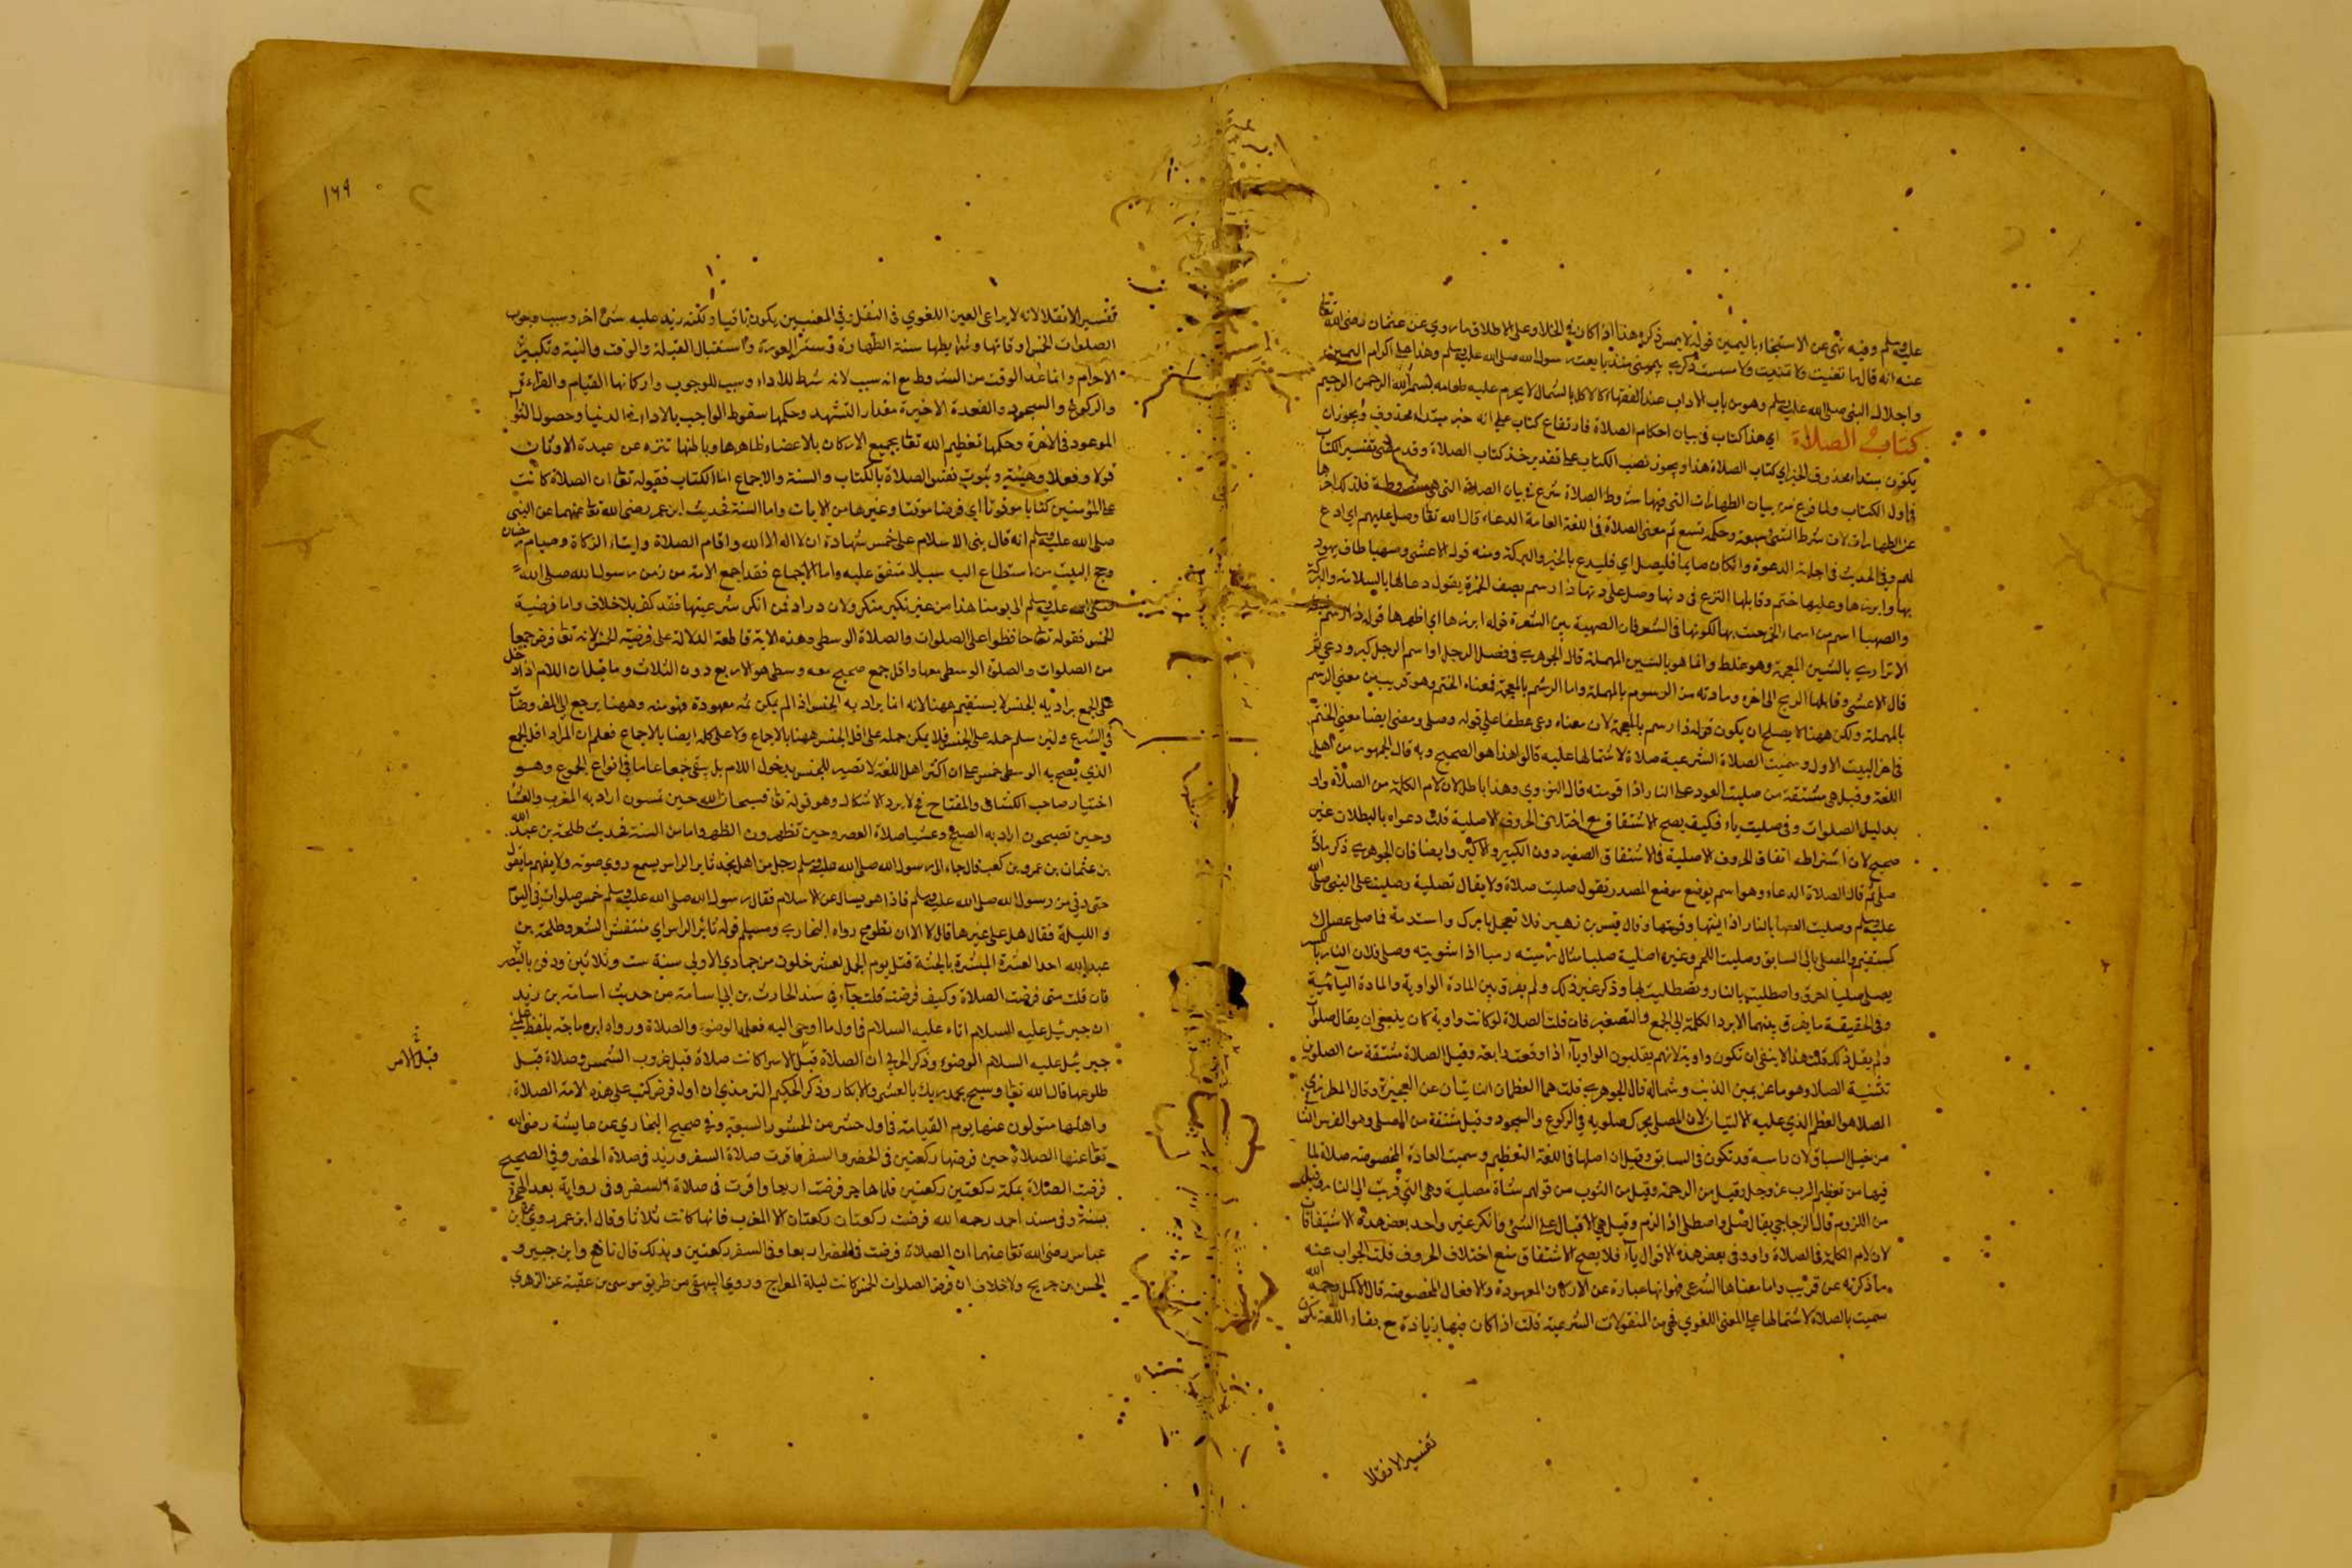 عليه وسلم وفيه نهى عن الاستنجاء باليمين قوله لا يمس ذكره هذا اذا كان في الخلاء وعلى الاطلاق ما روي عن عثمان رضي الله تعالى
عنه انه قال ما تغنيت ولا تمنيت ولا مسست ذكري بيميني منذ بايعت رسول الله صلى الله عليه وسلم وهذا على اكرام اليمين
واجلال النبي صلى الله عليه وسلم وهو من باب الاداب عند الفقهاء كالاكل بالشمال لا يحرم عليه طعامه بسم الله الرحمن الرحيم
كتاب الصلاة اي هذا كتاب في بيان احكام الصلاة فارتفاع كتاب على انه خبر مبتداء محذوف ويجوز ان
يكون مبتداء محذوف الخبر اي كتاب الصلاة هذا ويجوز نصب الكتاب على تقدير خذ كتاب الصلاة وقد مضى تفسير الكتاب
في اول الكتاب ولما فرغ من بيان الطهارات التي فيها شروط الصلاة شرع في بيان الصلاة التي هي مشروطة فلذلك اخرها
عن الطهارات لان شرط الشيء يسبقه وحكمه يتبع ثم معنى الصلاة في اللغة العامة الدعاء قال الله تعالى وصل عليهم اي ادع
لهم وفي الحديث في اجابة الدعوة وان كان صايما فليصل اي فليدع بالخير والبركة ومنه قوله الاعشى وصهبا طاف يهود
بها وابرزها وعليها ختم وقابلها الريح في دنها وصلى على دنها وارتسم يصف الخمرة يقول دعا لها بالسلامة والبركة
والصهبا اسم من اسماء الخمر سميت بها لكونها في الشعر فان الصهبة بين الشقرة قوله ابرزها اي اظهرها قوله وارتسم
الاترازي بالشين المعجمة وهو غلط وانما هو بالسين المهملة قال الجوهري في فصل الرجل اوا اسم الرجل كبر ودعي ثم
قال الاعشى وقابلها الريح الى اخره ومادته من الرسوم بالمهملة واما الرشم بالمعجمة فمعناه الختم وهو قريب من معنى الرسم
بالمهملة ولكن ههنا لا يصلح ان يكون قوله وارتسم بالمعجمة لان معناه دعى عطفا على قوله وصلى ومضى ايضا معنى الختم
في اخر البيت الاول وسميت الصلاة الشرعية صلاة لاشتمالها عليه قالوا هذا هو الصحيح وبه قال الجمهور من اهل
اللغة وقيل هي مشتقة من صليت العود على النار اذا قومته قال النووي وهذا باطل لان لام الكلمة من الصلاة واو
بدليل الصلوات وفي صليت ياء فكيف يصح الاشتقاق مع اختلاف الحروف الاصلية قلت دعواه بالبطلان غير
صحيح لان اشتراطه اتفاق الحروف الاصلية في الاشتقاق الصغير دون الكبير والاكبر وايضا فان الجوهري ذكر مادة
صلى ثم قال الصلاة الدعاء وهو اسم يوضع موضع المصدر تقول صليت صلاة ولا يقال تصلية وصليت على النبي صلى الله
عليه وسلم وصليت العصا بالنار اذا لينتها وقومتها وقال قيس بن زهير فلا تعجل بامرك واستدمه فما صلى عصاك
كمستقيم والمصلى تالى السابق وصليت اللحم وغيره اصليه صليا مثال رميته رميا اذا شويته وصلى فلان النار بالكسر
يصلى صليا احرق واصطليت بالنار وتصطليت بها وذكر غير ذلك ولم يفرق بين المادة الواوية والمادة اليائية
وفي الحقيقة ما يفرق بينهما الا برد الكلمة الى الجمع والتصغير فان قلت الصلاة لو كانت واوية كان ينبغي ان يقال صلوت
ولم يقل ذلك قلت هذا لا ينبغي ان تكون واوية لانهم يقلبون الواو ياء اذا وقعت رابعة وقيل الصلاة مشتقة من الصلوين
تثنية الصلا وهو ما عن يمين الذنب وشماله قال الجوهري قلت هما العظمان الناتيان عند العجيزة وقال المطرزي
الصلا هو العظم الذي عليه الاليتان لان المصلي يحرك صلويه في الركوع والسجود وقيل مشتقة من المصلى وهو الفرس الثاني
من خيل السباق لان راسه قد تكون في السابق وقيل ان اصلها في اللغة التعظيم وسميت العبادة المخصوصة صلاة لما
فيها من تعظيم الرب عز وجل وقيل من الرحمة وقيل من التقرب من قولهم شاة مصلية وهي التي قربت الى النار وقيل
من اللزوم قال الزجاجي يقال صلى واصطلى اذا لزم وقيل هي الاقبال على الشيء وانكر غير واحد بعض هذه الاشتقاقات
لان لام الكلمة في الصلاة واو وفي بعض هذه الاقوال ياء فلا يصح الاشتقاق مع اختلاف الحروف قلت الجواب عنه
ما ذكرته عن قريب واما معناها الشرعي فهو انها عبارة عن الاركان المعهودة والافعال المخصوصة قال الاكمل رحمه الله
سميت بالصلاة لاشتمالها على المعنى اللغوي فهي من المنقولات الشرعية قلت اذا كان فيها زيادة مع بقاء اللغة تكون
تفسير الانتقلا
١٦٩
تفسير الانتقلا لانه لا يراعى العين اللغوي في النقل وفي المعنيين يكون باقيا ولكنه زيد عليه شيء اخر وسبب وجوب
الصلوات الخمس اوقاتها وشرايطها ستة الطهارة وستر العورة واستقبال القبلة والوقت والنية وتكبيرة
الاحرام وانما عد الوقت من الشروط مع انه سبب لانه شرط للاداء وسبب للوجوب واركانها القيام والقراءة
والركوع والسجود والقعدة الاخيرة مقدار التشهد وحكمها سقوط الواجب بالاداء في الدنيا وحصول الثواب
الموعود في الاخرة وحكمها تعظيم الله تعالى بجميع الاركان بالاعضاء ظاهرها وباطنها تنزه عن عبدة الاوثان
قولا وفعلا وهيئة وثبوت نفس الصلاة بالكتاب والسنة والاجماع اما الكتاب فقوله تعالى ان الصلاة كانت
على المؤمنين كتابا موقوتا اي فرضا موقتا وغيرها من الايات واما السنة فحديث ابن عمر رضي الله تعالى عنهما عن النبي
صلى الله عليه وسلم انه قال بني الاسلام على خمس شهادة ان لا اله الا الله واقام الصلاة وايتاء الزكاة وصيام رمضان
وحج البيت من استطاع اليه سبيلا متفق عليه واما الاجماع فقد اجمع الامة من زمن رسول الله صلى الله
صلى الله عليه وسلم الى يومنا هذا من غير نكير منكر ولا در راد فمن انكر شرعيتها فقد كفر بلا خلاف واما فرضية
الخمس فقوله تعالى حافظوا على الصلوات والصلاة الوسطى وهذه الاية قاطعة الدلالة على فرضية الخمس لانه تعالى فرض جمعا
من الصلوات والصلاة الوسطى معها واقل جمع صحيح معه وسطى هو الاربع دون الثلاث وما قيل ان اللام اذا دخل
على الجمع يراد به الجنس لا يستقيم ههنا لانه انما يراد به الجنس اذا لم يكن ثمه معهودة فهو منه وههنا يرجع الى المفروضات
في الشرع ولئن سلم حمله على الجنس فلا يمكن حمله على اقل الجنس ههنا بالاجماع ولا على كله ايضا بالاجماع فعلم ان المراد اقل الجمع
الذي يصح به الوسطى خمس على ان اكثر اهل اللغة لا تصير للجنس بدخول اللام بل يبقى جمعا عاما في انواع الجموع وهو
اختيار صاحب الكشاف والمفتاح فح لا يرد الاشكال وهو قوله تعالى فسبحان الله حين تمسون اراد به المغرب والعشا
وحين تصبحون اراد به الصبح وعشيا صلاة العصر وحين تظهرون الظهر واما من السنة فحديث طلحة بن عبيد الله
بن عثمان بن عمرو بن كعب قال جاء الى رسول الله صلى الله عليه وسلم رجل من اهل نجد ثاير الراس يسمع دوي صوته ولا يفهم ما يقول
حتى دنى من رسول الله صلى الله عليه وسلم فاذا هو يسال عن الاسلام فقال رسول الله صلى الله عليه وسلم خمس صلوات في اليوم
والليلة فقال هل علي غيرها قال لا الا ان تطوع رواه البخاري ومسلم قوله ثائر الراس اي منتفش الشعر وطلحة بن
عبيد الله احد العشرة المبشرة بالجنة قتل يوم الجمل لعشر خلون من جمادي الاولى سنة ست وثلاثين ودفن بالبصرة
فان قلت متى فرضت الصلاة وكيف فرضت قلت جاء في مسند الحارث بن ابي اسامة من حديث اسامة بن زيد
ان جبرئيل عليه السلام اتاه عليه السلام في اول ما اوحي اليه فعلمه الوضوء والصلاة ورواه ابن ماجة بلفظ علمني
جبرئيل عليه السلام الوضوء وذكر الحربي ان الصلاة قبل الاسرا كانت صلاة قبل غروب الشمس وصلاة قبل
طلوعها قال الله تعالى وسبح بحمد ربك بالعشي والابكار وذكر الحكيم الترمذي ان اول فرض كتب على هذه الامة الصلاة
واهلها مسئولون عنها يوم القيامة في اول حشر من الحشور السبعة وفي صحيح البخاري عن عايشة رضي الله
تعالى عنها الصلاة حين فرضها ركعتين في الحضر والسفر فاقرت صلاة السفر وزيد في صلاة الحضر وفي الصحيح
فرضت الصلاة بمكة ركعتين ركعتين فلما هاجر فرضت اربعا واقرت في صلاة السفر وفي رواية بعد الهجرة
بسنة وفي مسند احمد رحمه الله فرضت ركعتان ركعتان الا المغرب فانها كانت ثلاثا وقال ابن عمر وروي عن ابن
عباس رضي الله تعالى عنهما ان الصلاة فرضت في الحضر اربعا وفي السفر ركعتين وبذلك قال نافع وابن جبير و
الحسن بن جريج ولا خلاف ان فرض الصلوات الخمس كانت ليلة المعراج وروى البيهقي من طريق موسى بن عقبة عن الزهري
قبل الامر